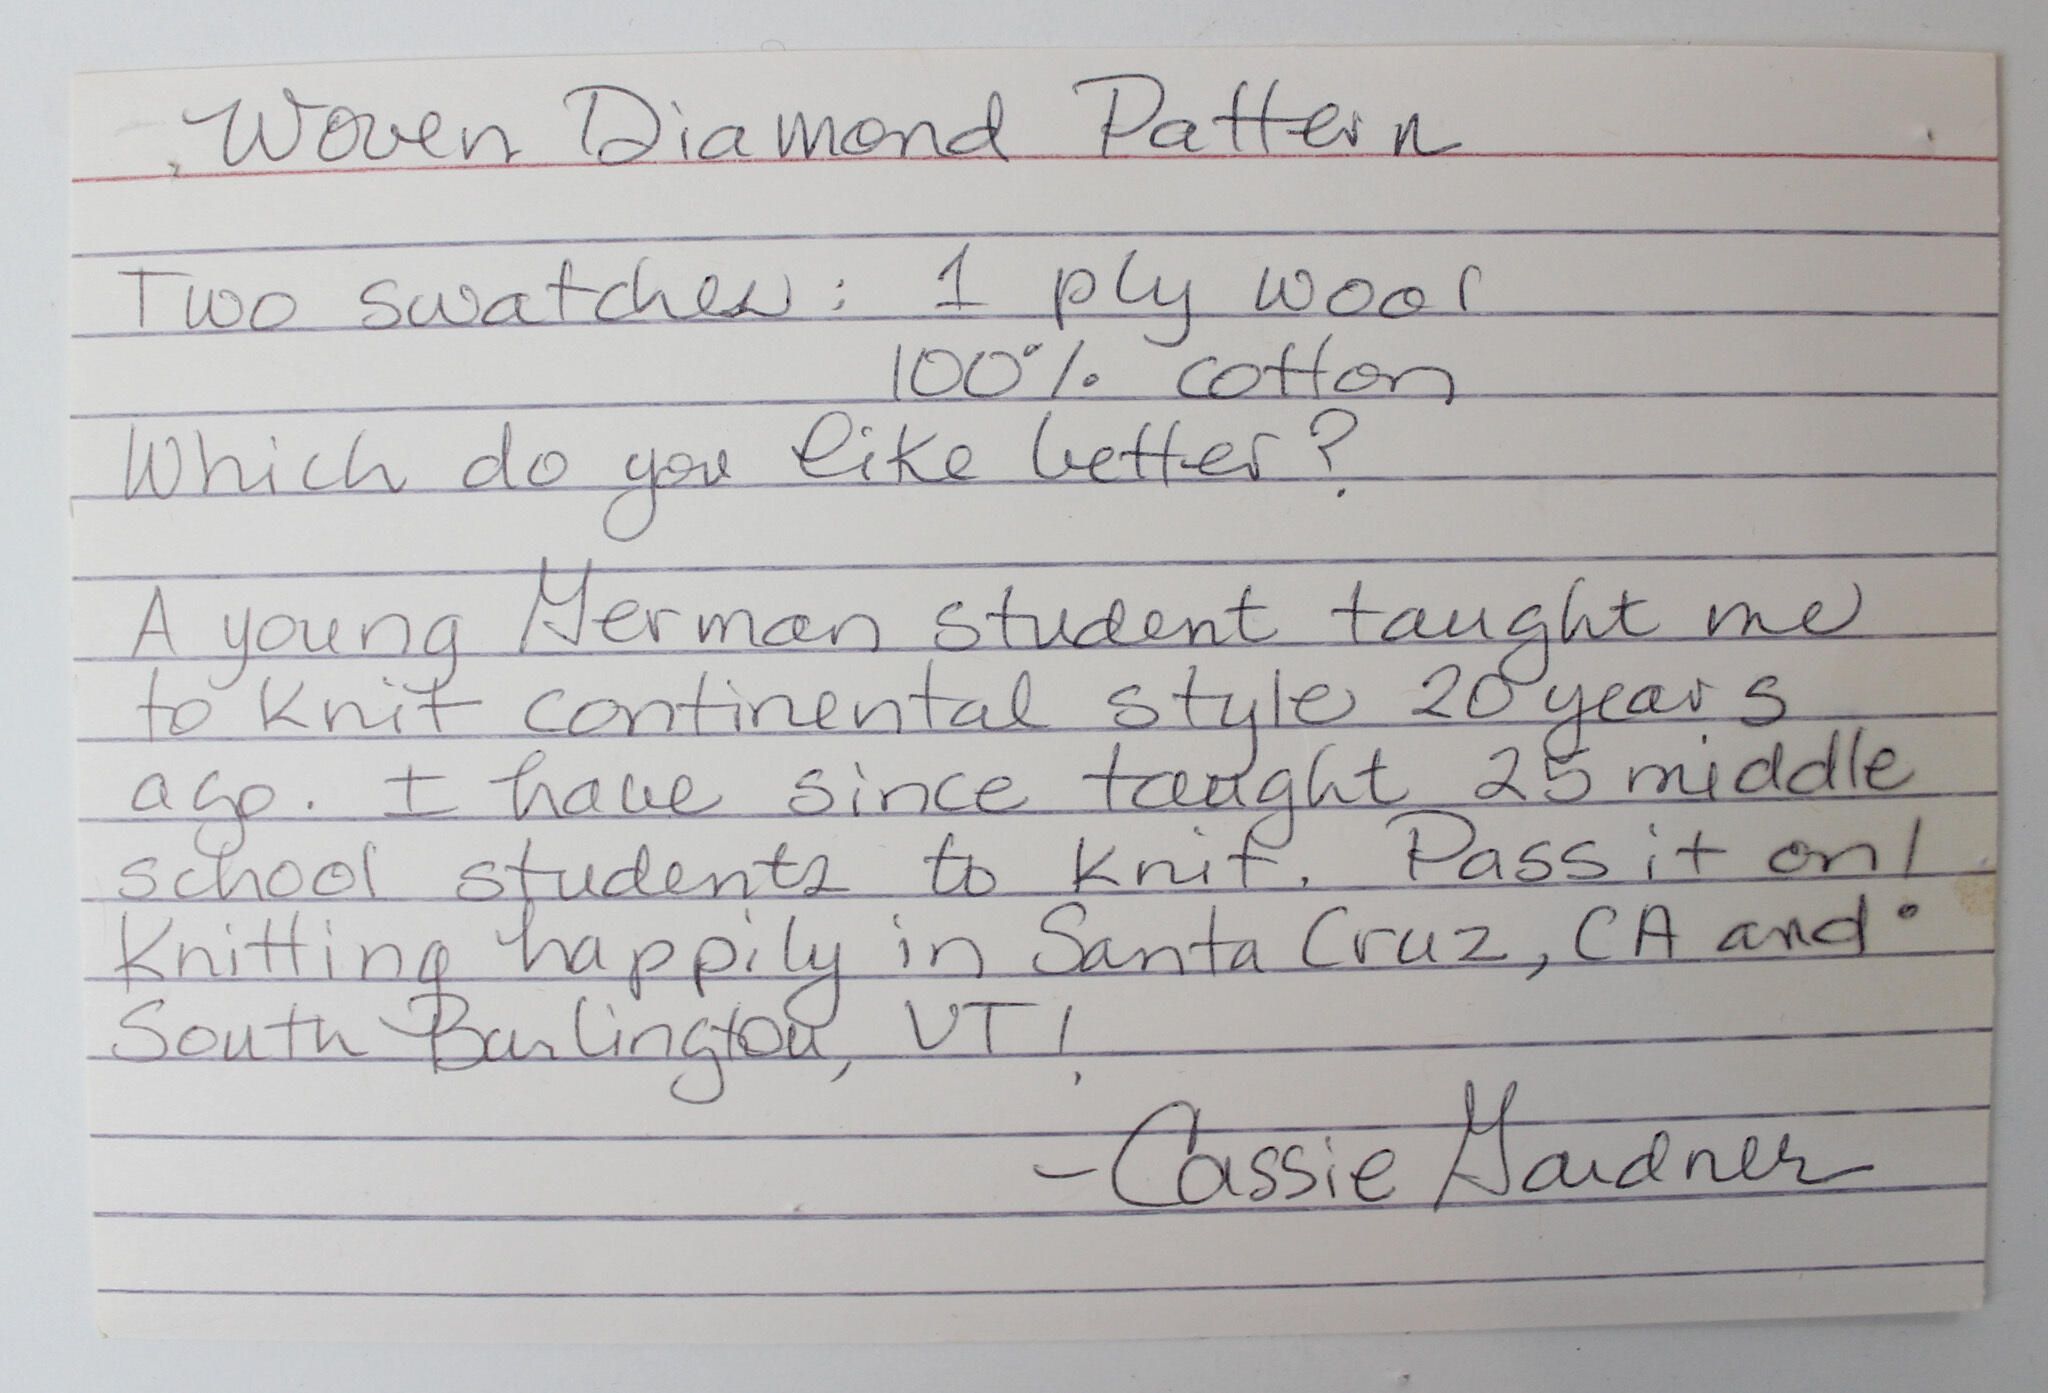 Woven Diamond Pattern
Two swatches: 1 ply wool
100% cotton
Which do you like better?
A young German student taught me
to knit continental style 20 years
ago. I have since taught 25 middle
school students to knit. Pass it on!
Knitting happily in Santa Cruz, CA and
South Burlington, VT!
-Cassie Gardner